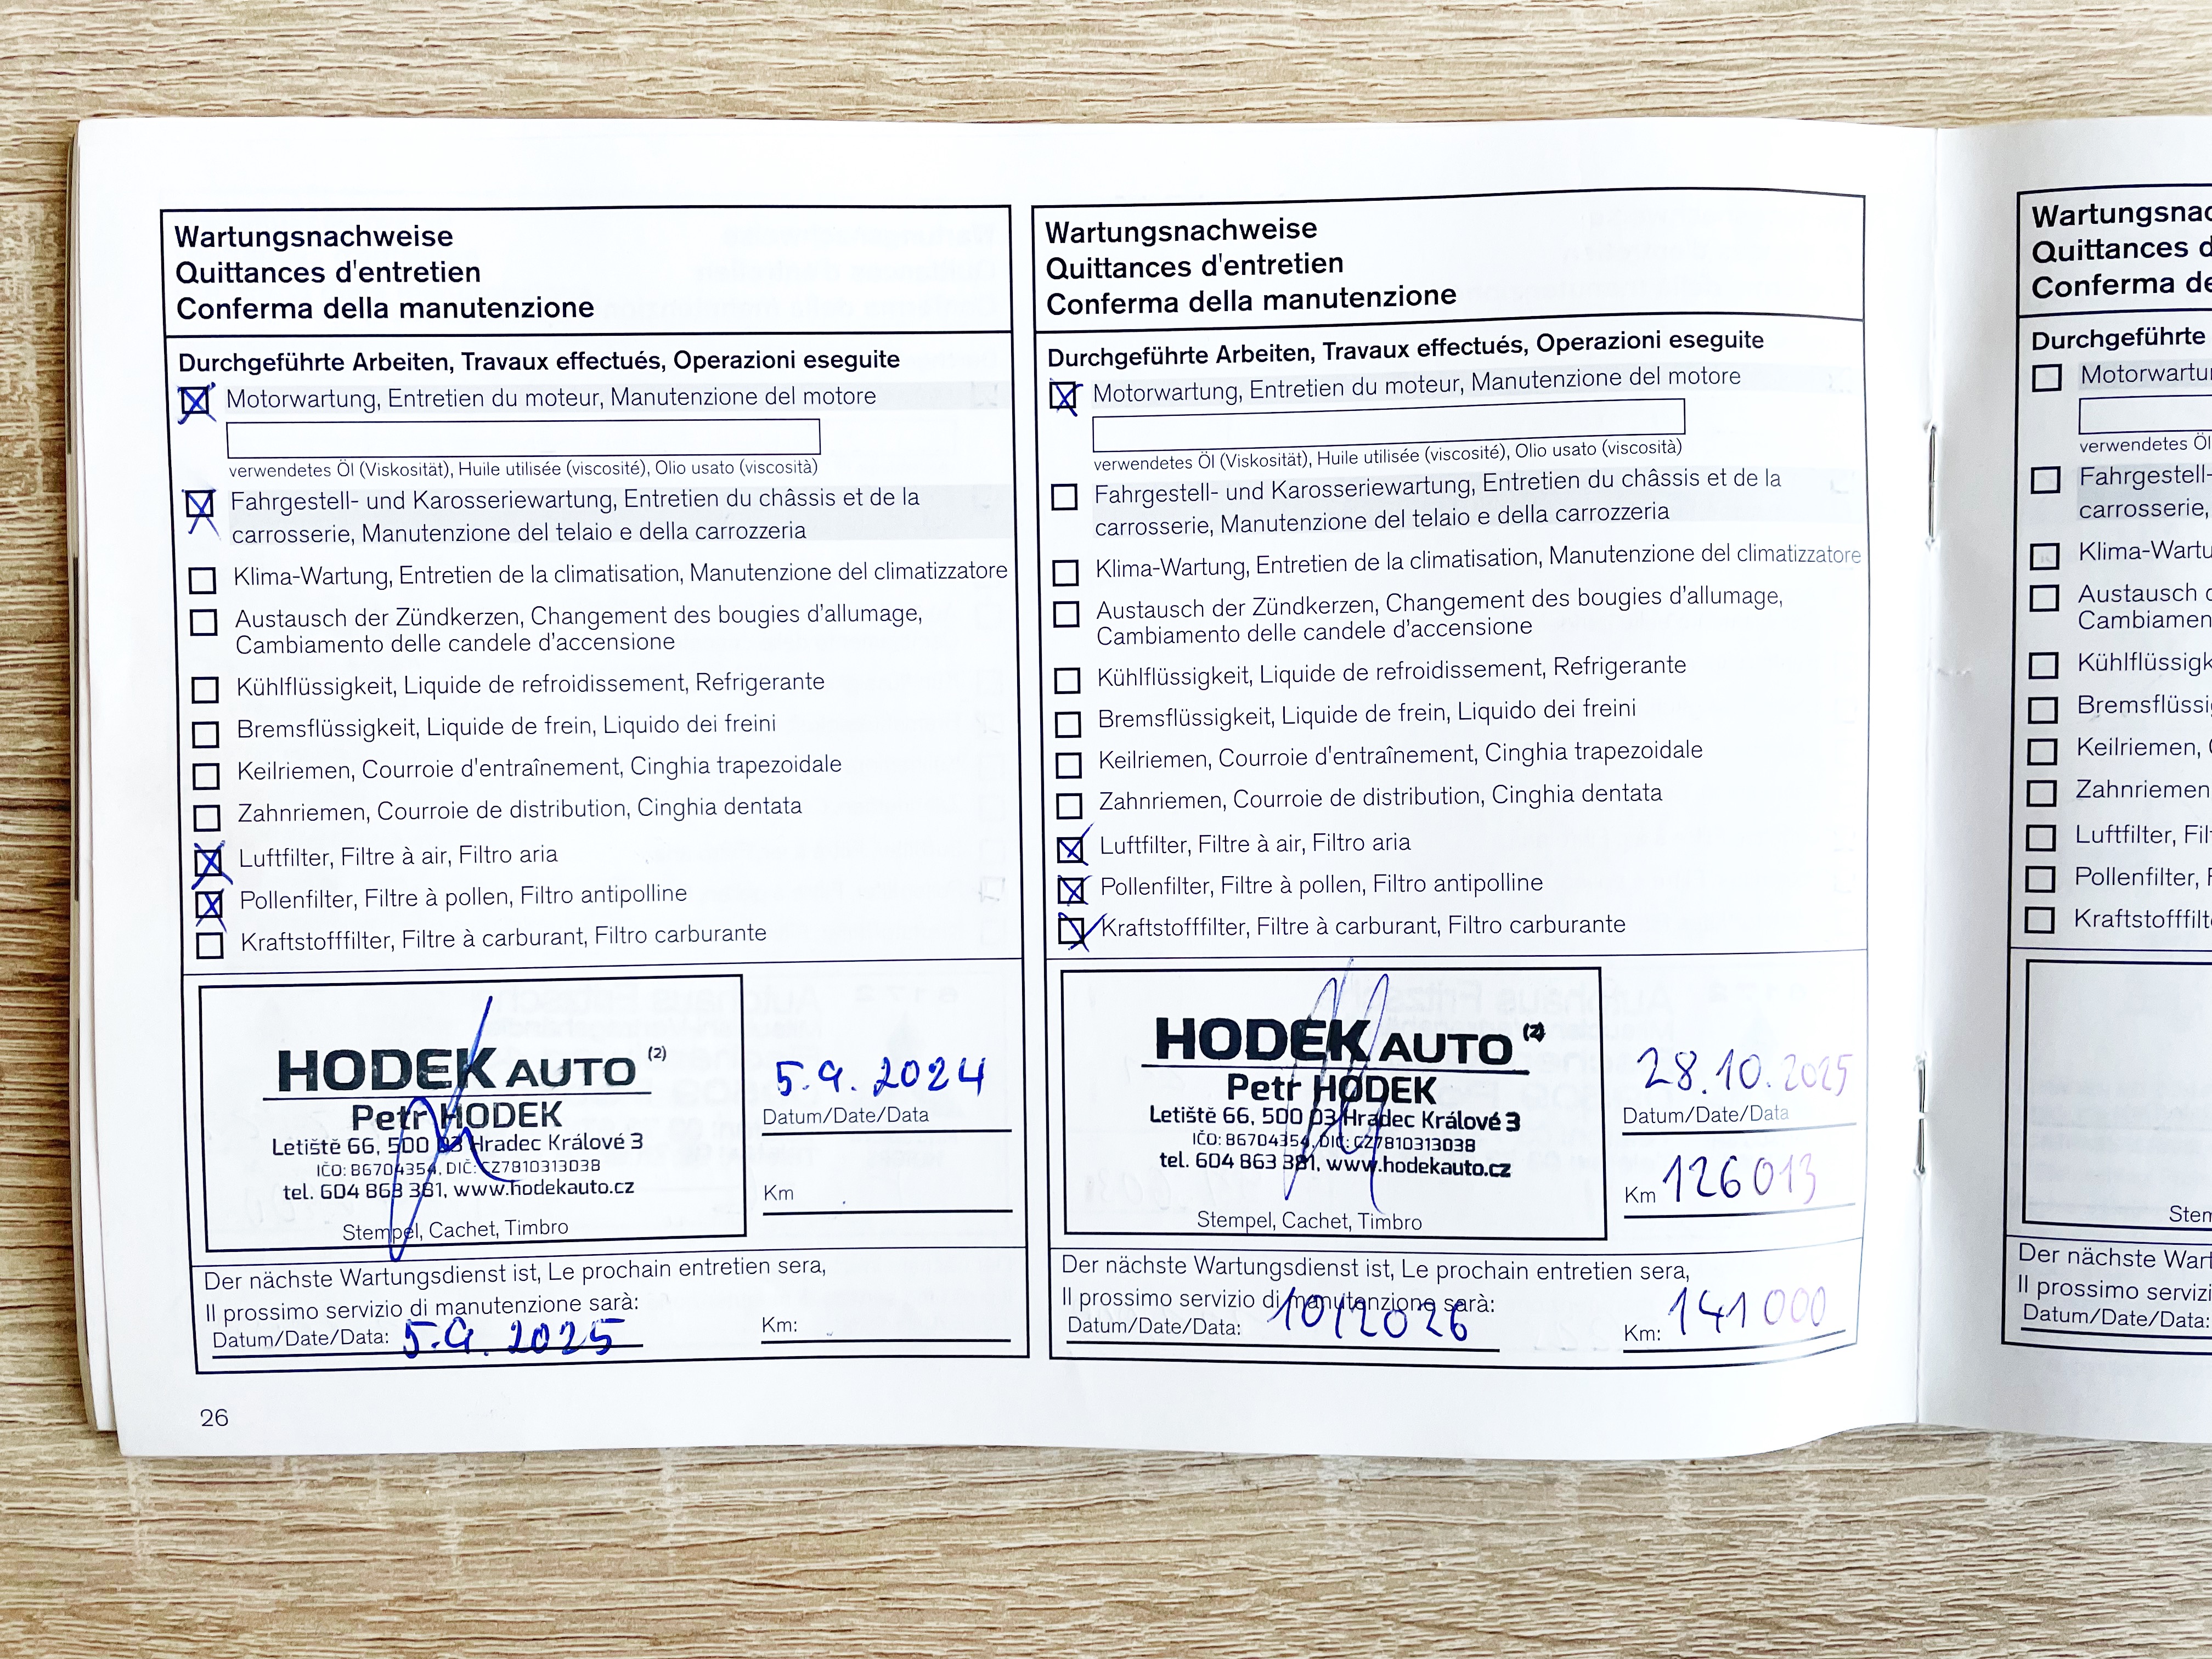 Wartungsnachweise
Quittances d'entretien
Conferma della manutenzione
Durchgeführte Arbeiten, Travaux effectués, Operazioni eseguite
Motorwartung, Entretien du moteur, Manutenzione del motore
verwendetes Öl (Viskosität), Huile utilisée (viscosité), Olio usato (viscosità)
Fahrgestell- und Karosseriewartung, Entretien du châssis et de la
carrosserie, Manutenzione del telaio e della carrozzeria
Klima-Wartung, Entretien de la climatisation, Manutenzione del climatizzatore
Austausch der Zündkerzen, Changement des bougies d'allumage,
Cambiamento delle candele d'accensione
Kühlflüssigkeit, Liquide de refroidissement, Refrigerante
Bremsflüssigkeit, Liquide de frein, Liquido dei freini
Keilriemen, Courroie d'entraînement, Cinghia trapezoidale
Zahnriemen, Courroie de distribution, Cinghia dentata
Luftfilter, Filtre à air, Filtro aria
Pollenfilter, Filtre à pollen, Filtro antipolline
Kraftstofffilter, Filtre à carburant, Filtro carburante
HODEK AUTO (2)
Petr HODEK
Letiště 66, 500 03 Hradec Králové 3
IČO: 86704354, DIČ: CZ7810313038
tel. 604 863 381, www.hodekauto.cz
Stempel, Cachet, Timbro
5.9.2024
Datum/Date/Data
Km
Der nächste Wartungsdienst ist, Le prochain entretien sera,
Il prossimo servizio di manutenzione sarà:
Datum/Date/Data: 5.9.2025
Km:
26
Wartungsnachweise
Quittances d'entretien
Conferma della manutenzione
Durchgeführte Arbeiten, Travaux effectués, Operazioni eseguite
Motorwartung, Entretien du moteur, Manutenzione del motore
verwendetes Öl (Viskosität), Huile utilisée (viscosité), Olio usato (viscosità)
Fahrgestell- und Karosseriewartung, Entretien du châssis et de la
carrosserie, Manutenzione del telaio e della carrozzeria
Klima-Wartung, Entretien de la climatisation, Manutenzione del climatizzatore
Austausch der Zündkerzen, Changement des bougies d'allumage,
Cambiamento delle candele d'accensione
Kühlflüssigkeit, Liquide de refroidissement, Refrigerante
Bremsflüssigkeit, Liquide de frein, Liquido dei freini
Keilriemen, Courroie d'entraînement, Cinghia trapezoidale
Zahnriemen, Courroie de distribution, Cinghia dentata
Luftfilter, Filtre à air, Filtro aria
Pollenfilter, Filtre à pollen, Filtro antipolline
Kraftstofffilter, Filtre à carburant, Filtro carburante
HODEK AUTO (2)
Petr HODEK
Letiště 66, 500 03 Hradec Králové 3
IČO: 86704354, DIČ: CZ7810313038
tel. 604 863 381, www.hodekauto.cz
Stempel, Cachet, Timbro
28.10.2025
Datum/Date/Data
Km 126013
Der nächste Wartungsdienst ist, Le prochain entretien sera,
Il prossimo servizio di manutenzione sarà:
Datum/Date/Data: 10/2026
Km: 141 000
Wartungsnac
Quittances d
Conferma de
Durchgeführte
Motorwartu
verwendetes Öl
Fahrgestell-
carrosserie,
Klima-Wartu
Austausch d
Cambiamen
Kühlflüssigk
Bremsflüssig
Keilriemen, C
Zahnriemen
Luftfilter, Filt
Pollenfilter, F
Kraftstofffilt
Stem
Der nächste Wart
Il prossimo servizi
Datum/Date/Data: